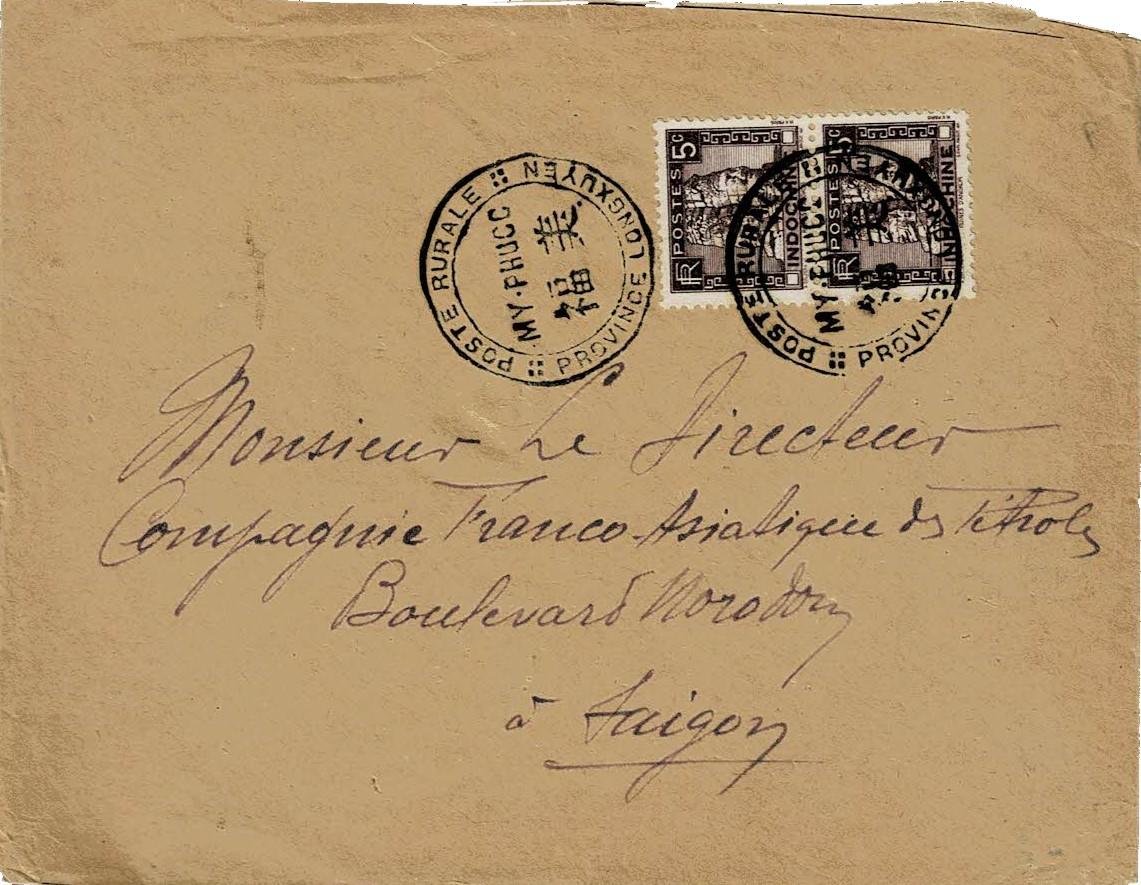 POSTES 5c
RF
INDOCHINE
POSTES 5c
RF
POSTE RURALE
PROVINCE LONGXUYEN
MY-PHUCC
美福
POSTE RURALE
PROVIN
MY-PHUCC
美福
Monsieur Le Directeur
Compagnie Franco-Asiatique des Pétroles
Boulevard Norodom
à Saigon